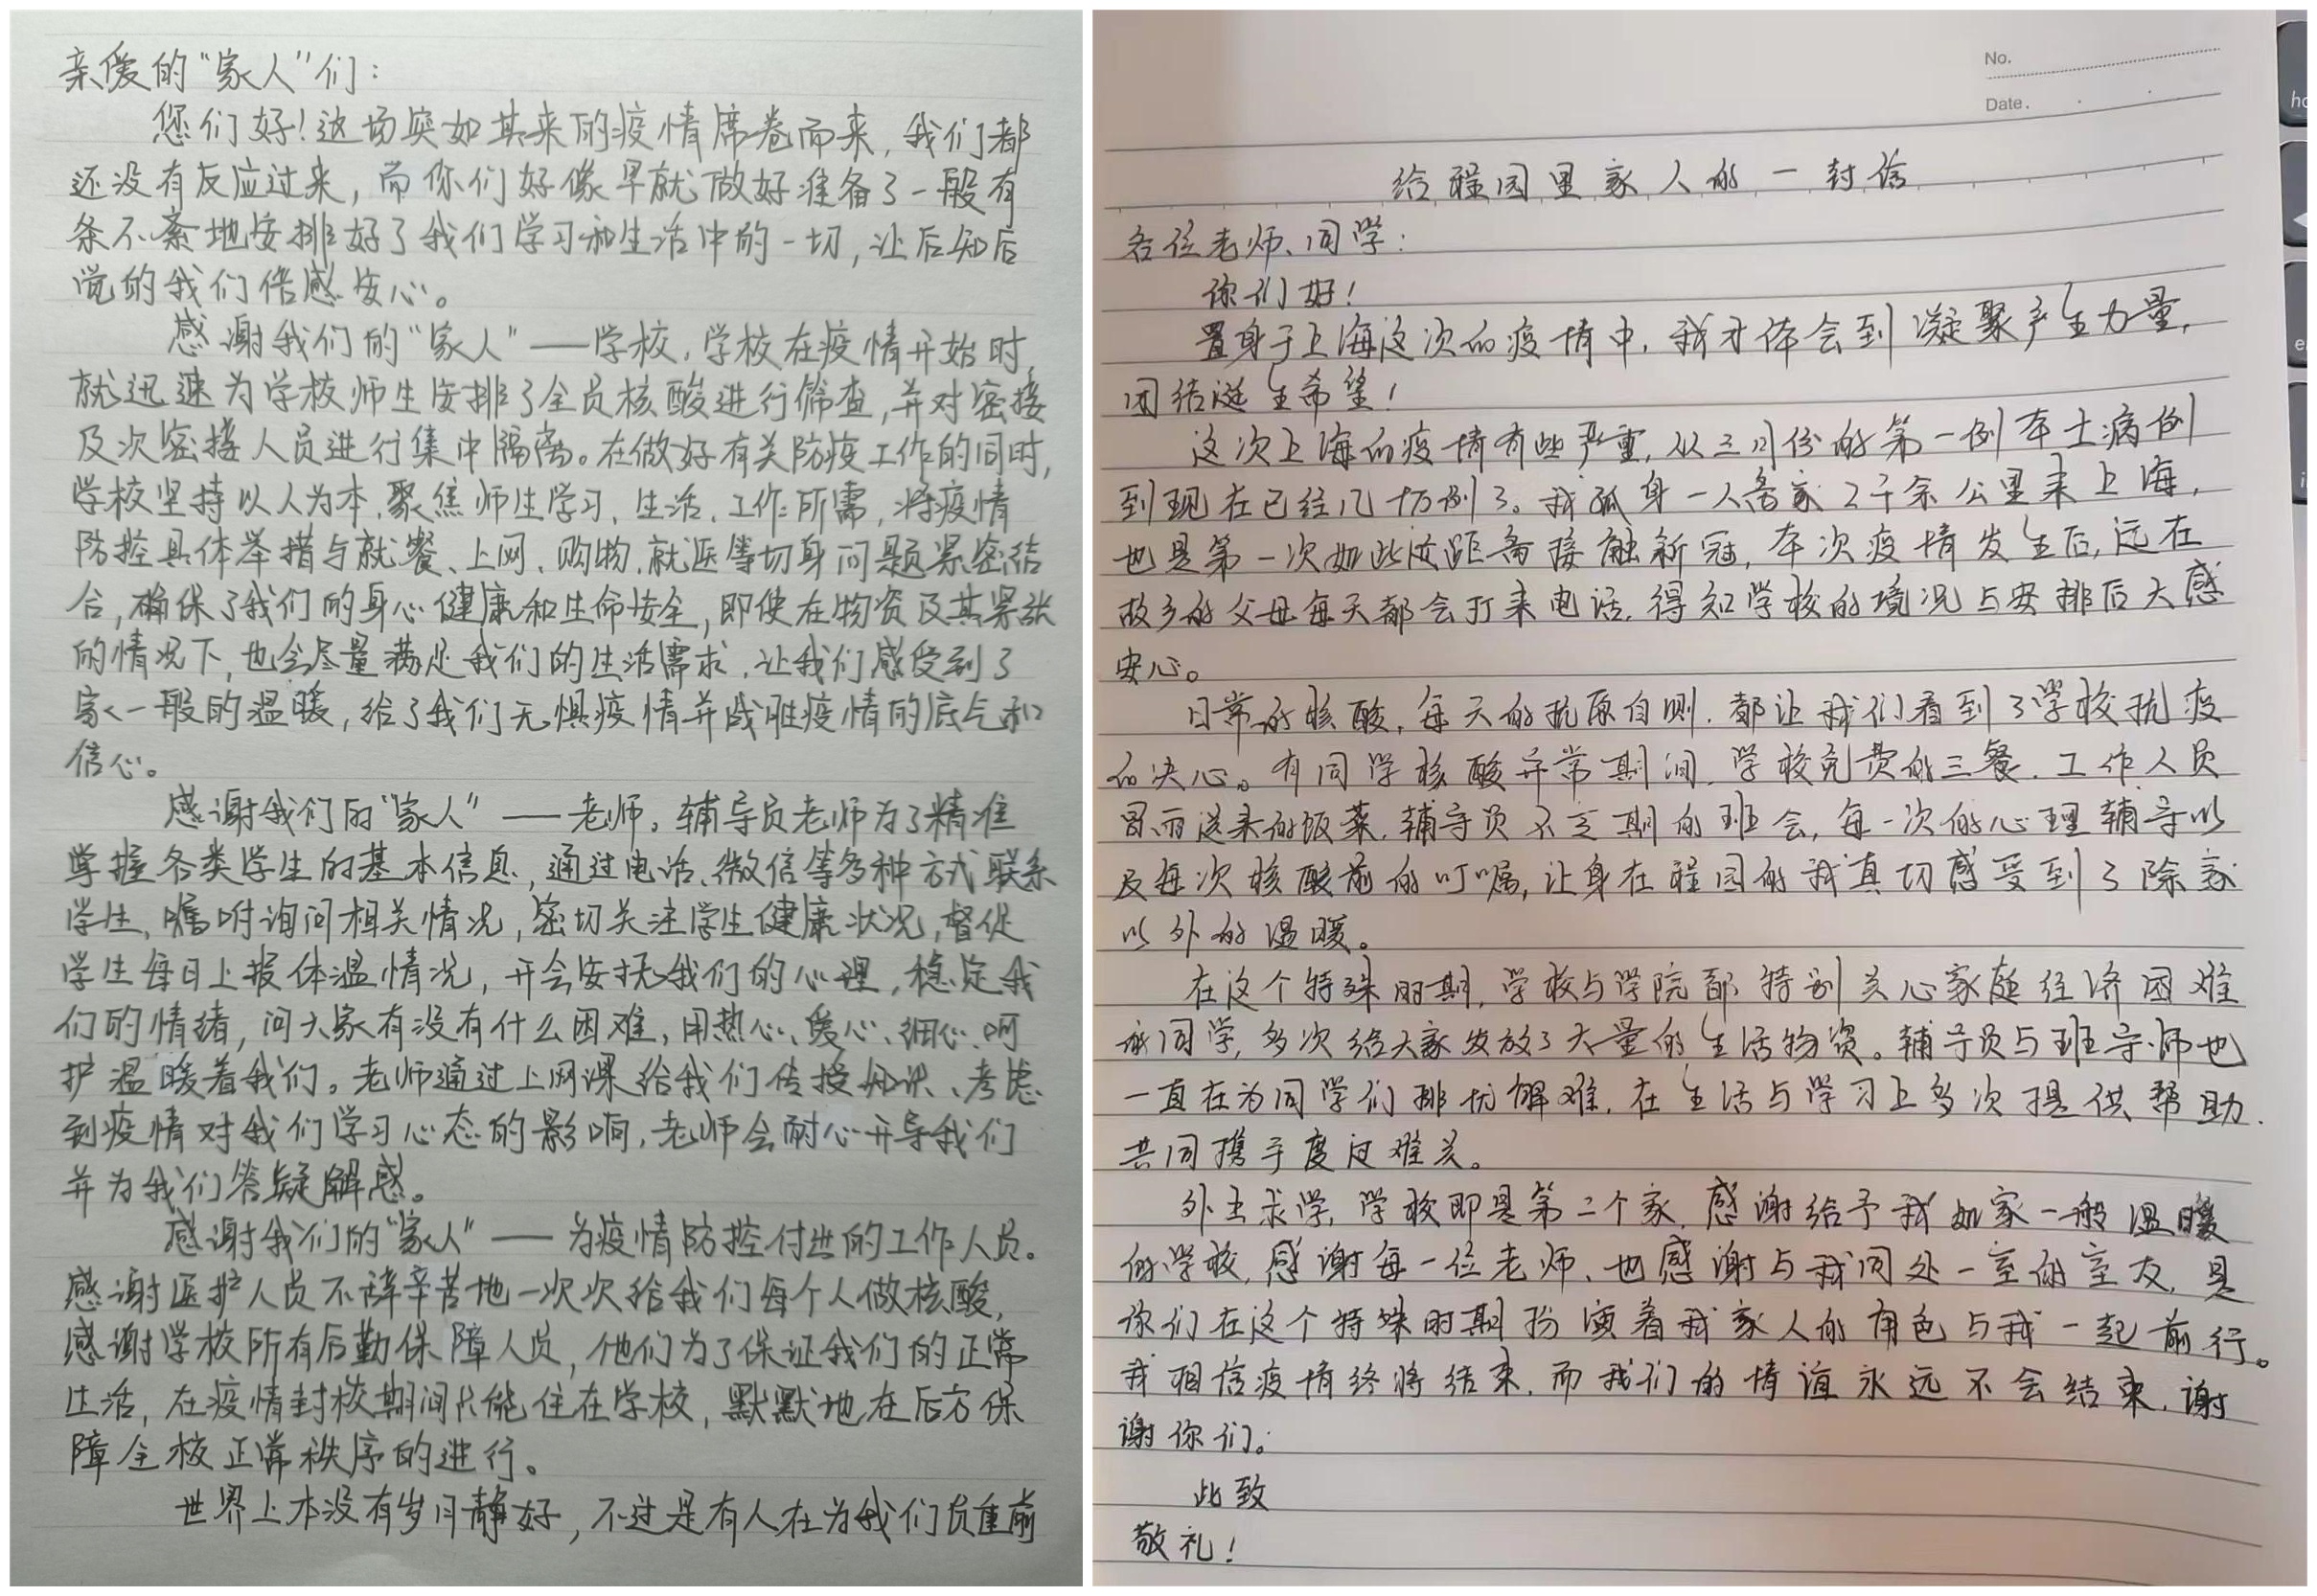 亲爱的“家人”们：
您们好！这场突如其来的疫情席卷而来，我们都
还没有反应过来，而你们好像早就做好准备了一般有
条不紊地安排好了我们学习和生活中的一切，让后知后
觉的我们倍感安心。
感谢我们的“家人”——学校，学校在疫情开始时，
就迅速为学校师生安排了全员核酸进行筛查，并对密接
及次密接人员进行集中隔离。在做好有关防疫工作的同时，
学校坚持以人为本，聚焦师生学习、生活、工作所需，将疫情
防控具体举措与就餐、上网、购物、就医等切身问题紧密结
合，确保了我们的身心健康和生命安全，即使在物资及其紧张
的情况下，也会尽量满足我们的生活需求，让我们感受到了
家一般的温暖，给了我们无惧疫情并战胜疫情的底气和
信心。
感谢我们的“家人”——老师。辅导员老师为了精准
掌握各类学生的基本信息，通过电话、微信等多种方式联系
学生，嘱咐询问相关情况，密切关注学生健康状况，督促
学生每日上报体温情况，开会安抚我们的心理，稳定我
们的情绪，问大家有没有什么困难，用热心、爱心、细心呵
护温暖着我们。老师通过上网课给我们传授知识、考虑
到疫情对我们学习心态的影响，老师会耐心开导我们
并为我们答疑解惑。
感谢我们的“家人”——为疫情防控付出的工作人员。
感谢医护人员不辞辛苦地一次次给我们每个人做核酸，
感谢学校所有后勤保障人员，他们为了保证我们的正常
生活，在疫情封校期间只能住在学校，默默地在后方保
障全校正常秩序的进行。
世界上本没有岁月静好，不过是有人在为我们负重前
No.
Date.
给程园里家人的一封信
各位老师、同学：
你们好！
置身于上海这次的疫情中，我才体会到凝聚产生力量，
团结诞生希望！
这次上海的疫情有些严重，从三月份的第一例本土病例
到现在已经几十万例了。我孤身一人离家2千余公里来上海，
也是第一次如此近距离接触新冠，本次疫情发生后，远在
故乡的父母每天都会打来电话，得知学校的境况与安排后大感
安心。
日常的核酸，每天的抗原自测，都让我们看到了学校抗疫
的决心。有同学核酸异常期间，学校免费的三餐，工作人员
冒雨送来的饭菜，辅导员不定期的班会，每一次的心理辅导以
及每次核酸前的叮嘱，让身在程园的我真切感受到了除家
以外的温暖。
在这个特殊时期，学校与学院都特别关心家庭经济困难
的同学，多次给大家发放了大量的生活物资。辅导员与班导师也
一直在为同学们排忧解难，在生活与学习上多次提供帮助，
共同携手度过难关。
外出求学，学校即是第二个家，感谢给予我如家一般温暖
的学校，感谢每一位老师、也感谢与我同处一室的室友，是
你们在这个特殊时期扮演着我家人的角色与我一起前行。
我相信疫情终将结束，而我们的情谊永远不会结束，谢
谢你们。
此致
敬礼！